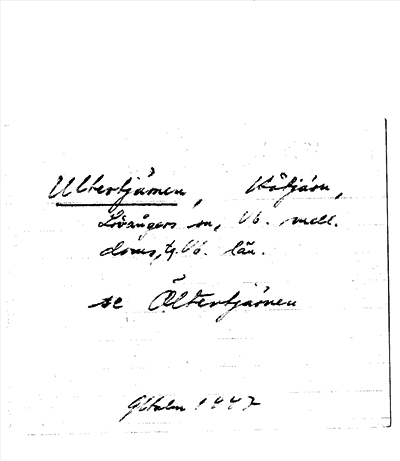 Ultertjärnen, Kåtjärn,
Lövångers sn, Vb. mell.
doms, tg. Vb. län.
se Öltertjärnen
GHolm 1947